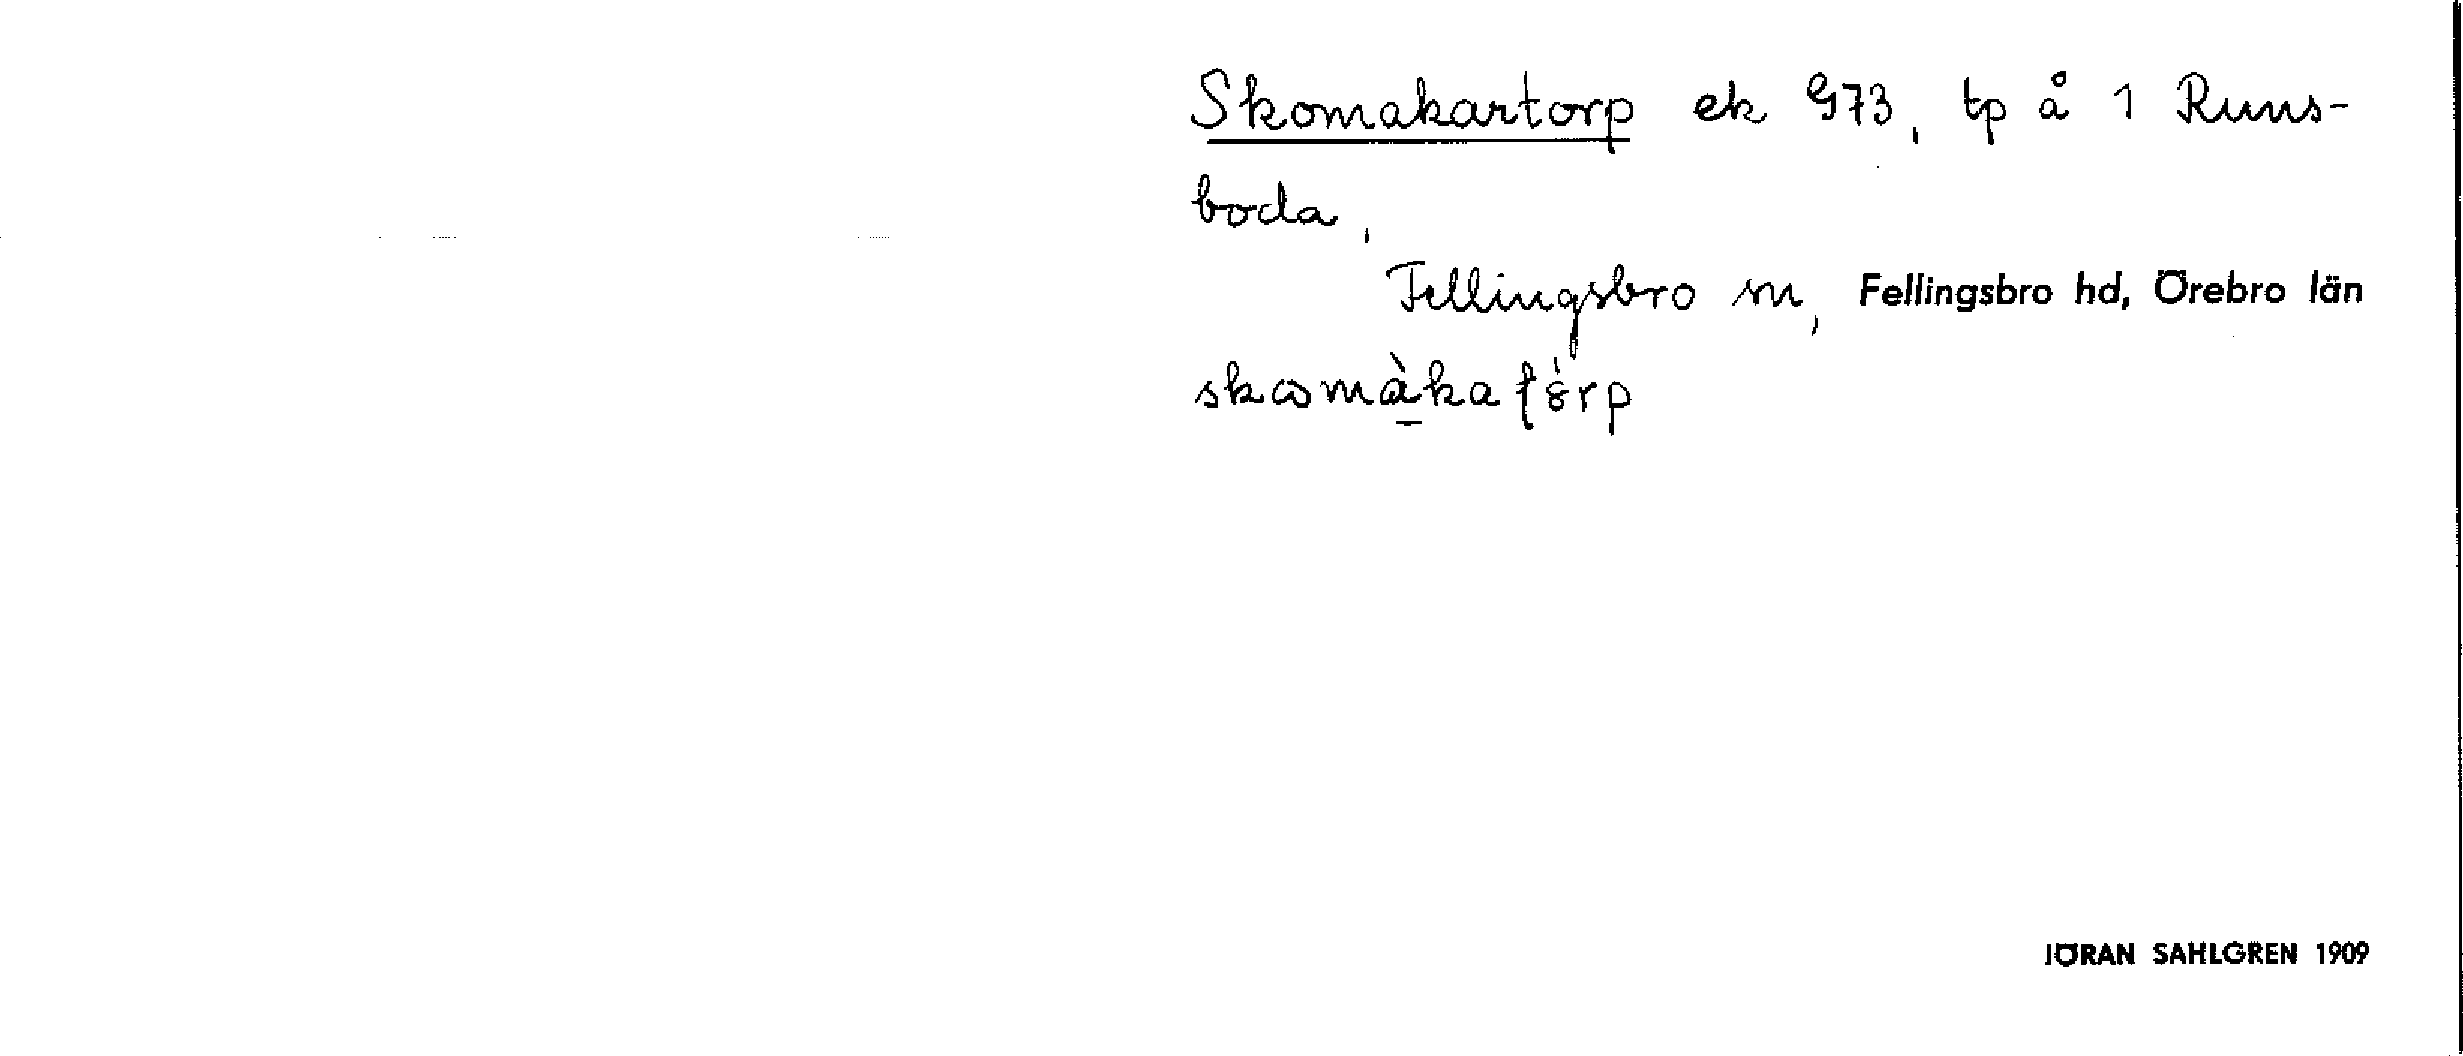 Skomakartorp ek G73, tp å 1 Runs-
boda,
Fellingsbro sn, Fellingsbro hd, Örebro län
JÖRAN SAHLGREN 1909